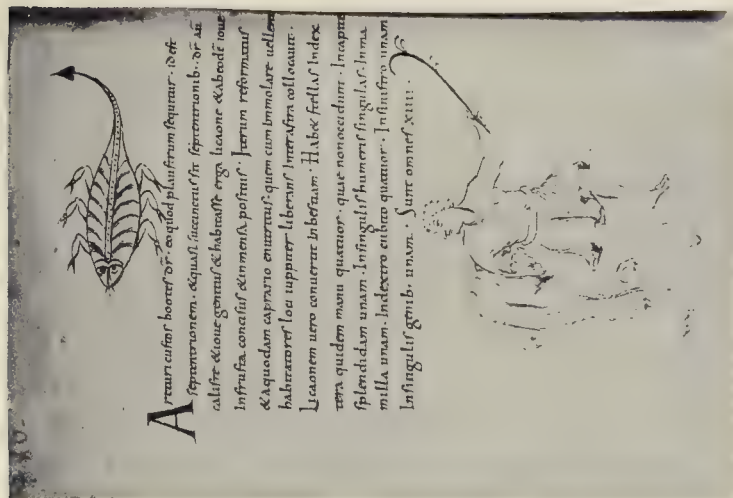 Arcturi custos bootes dr̄. eo quod plaustrum sequitur. id est
septentrionem. & quasi succinctus sit septentrionib.. dr̄ aū
calistre & ioue genitus & habitasse erga licaone & ab eodē ioue
In frusta concisus & in mensa positus. Iterum reformatus
& a quodam caprario enutritus. quem cum Immolare uellent
habitatores loci iuppiter liberans Inter astra collocauit.
Licaonem uero conuertit In bestiam. Habet stellas In dex
tera quidem manu quattuor. quae non occidunt. In capite
splendidam unam. In singulis humeris singulas. In ma
milla unam. In dextro cubito quattuor. In sinistro unam
In singulis genib. unam. Sunt omnes xiiii.